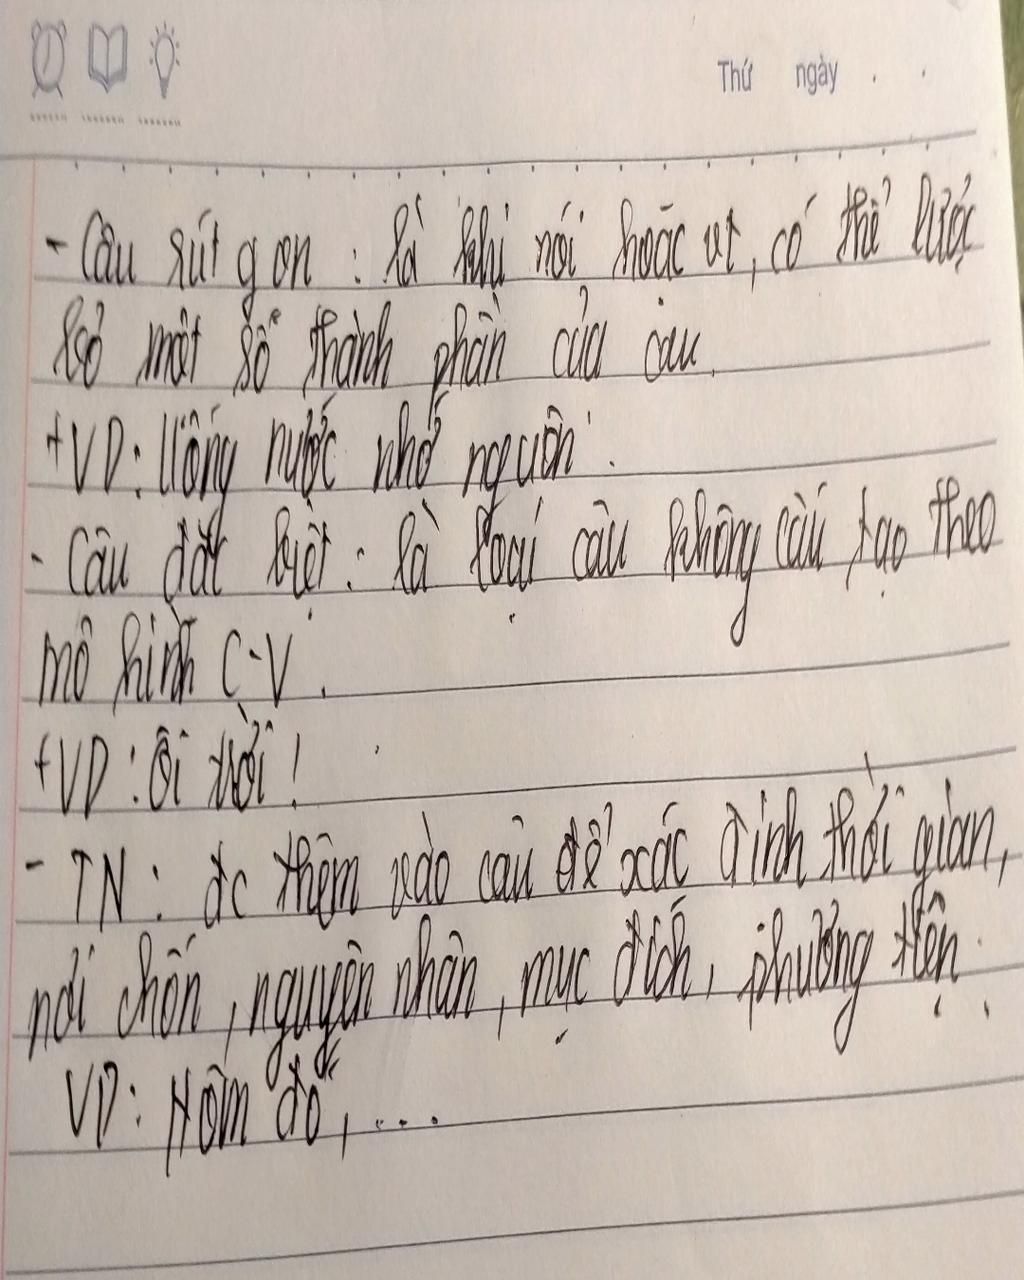 Thứ ngày . .
- Câu rút gọn : là khi nói hoặc vt, có thể lược
bỏ một số thành phần của câu.
+VD: Uống nước nhớ nguồn .
- Câu đặt biệt : là loại câu không cấu tạo theo
mô hình C-V.
+VD : Ôi trời !
- TN : đc thêm vào câu để xác định thời gian,
nơi chốn, nguyên nhân, mục đích, phương tiện.
VD: Hôm đó, ...